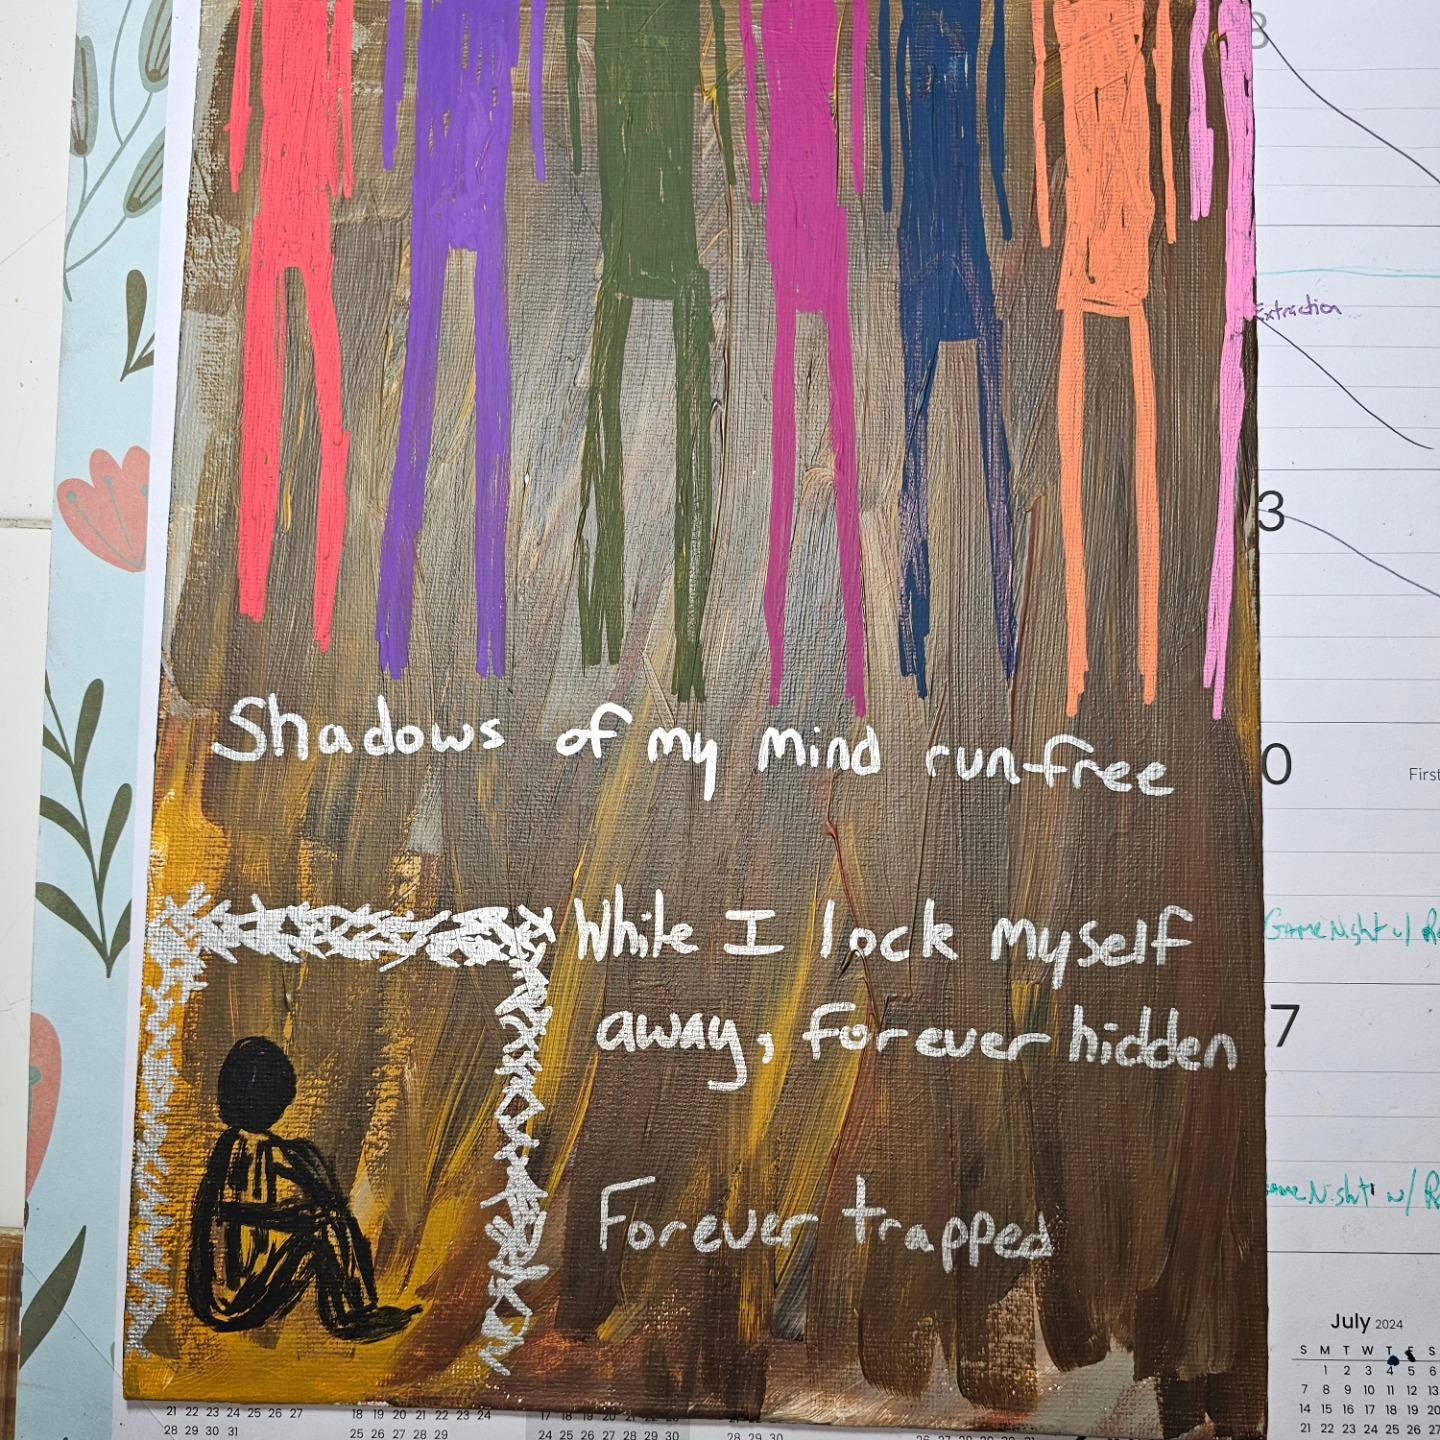 Shadows of my mind run free
While I lock myself
away, forever hidden
Forever trapped
8
Extraction
3
0
First
Game Night w/
7
Game Night w/
July 2024
S M T W T F S
1 2 3 4 5 6
7 8 9 10 11 12 13
14 15 16 17 18 19 20
21 22 23 24 25 26 27
21 22 23 24 25 26 27
28 29 30 31
18 19 20 21 22 23 24
25 26 27 28 29